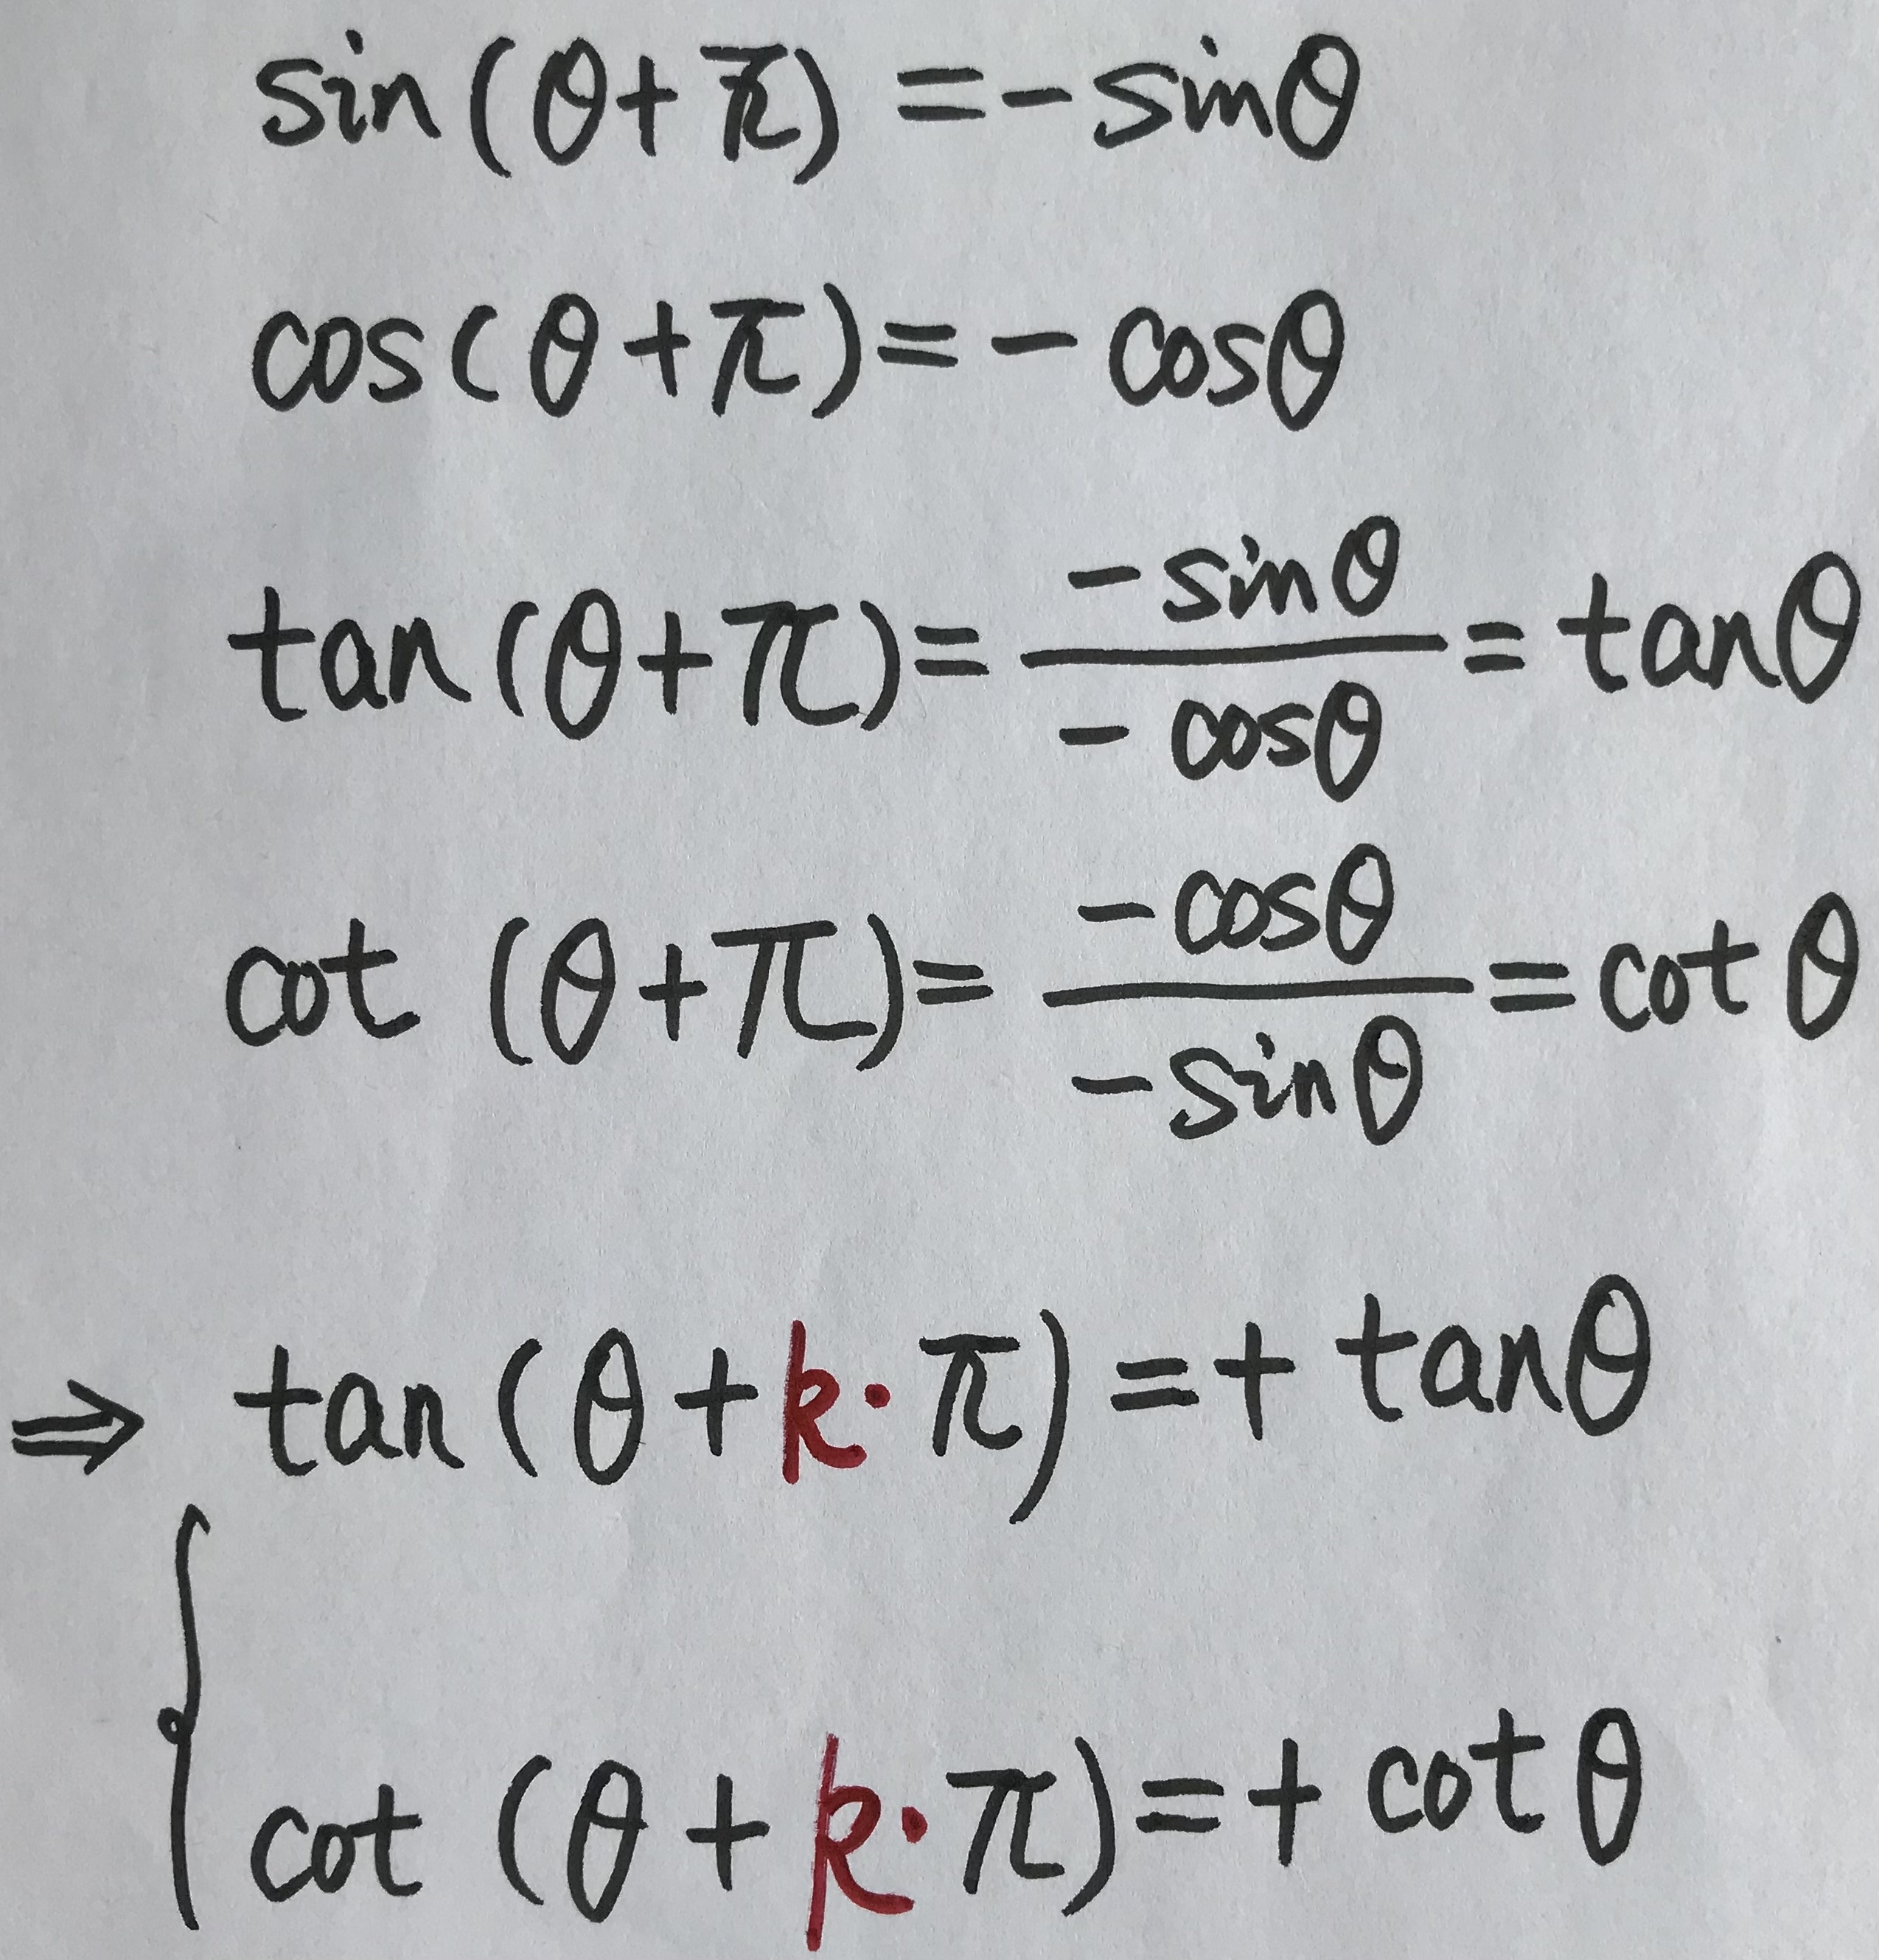 sin(θ+π)=-sinθ
cos(θ+π)=-cosθ
tan(θ+π)=\frac{-sinθ}{-cosθ}=tanθ
cot(θ+π)=\frac{-cosθ}{-sinθ}=cotθ
⇒ tan(θ+k·π)=+tanθ
{ cot(θ+k·π)=+cotθ